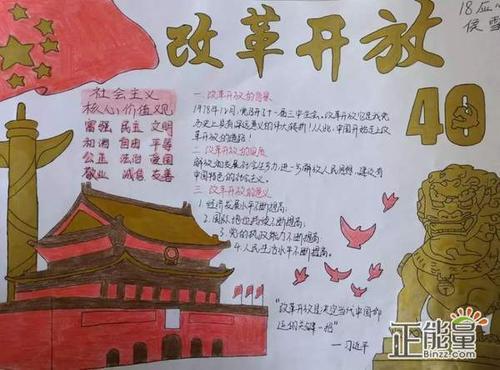 改革开放
40
18应
侯雪
社会主义
核心价值观
富强 民主 文明
和谐 自由 平等
公正 法治 爱国
敬业 诚信 友善
一. 改革开放的背景
1978年12月,党召开了十一届三中全会。改革开放是我党
历史上具有深远意义的伟大转折!从此,中国开始走上
改革开放的道路!
二. 改革开放的实质
解放和发展社会生产力,进一步解放人民思想,建设有
中国特色的社会主义。
三. 改革开放的意义
1.经济发展水平不断提高
2.国际地位 不断提高
3.党的执政能力不断提高
4.人民生活水平不断提高。
"改革开放是决定当代中国命
运的关键一招"
——习近平
正能量
Binzz.com